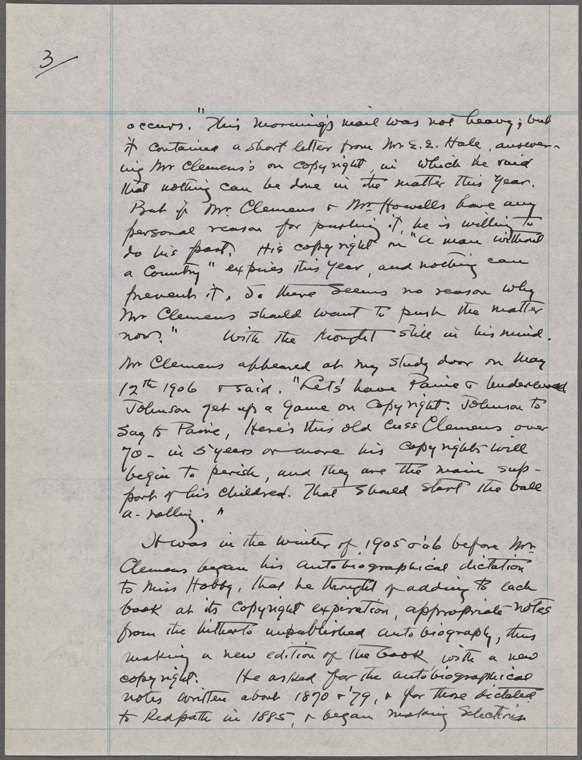 3
occurs. "This morning's mail was not heavy; but
it contained a short letter from Mr E. E. Hale, answer-
ing Mr Clemens's on copyright, in which he said
that nothing can be done in the matter this year.
But if Mr. Clemens & Mr. Howells have any
personal reason for pushing it, he is willing to
do his part. His copyright on "A man without
a Country" expires this year, and nothing can
prevent it, so there seems no reason why
Mr Clemens should want to push the matter
now." With the thought still in his mind.
Mr Clemens appeared at my study door on May
12th 1906 & said. "Let's have Paine & Underwood
Johnson get up a game on copyright. Johnson to
say to Paine, Here's this old cuss Clemens over
70 - in 5 years or more his copyrights will
begin to perish, and they are the main sup-
port of his children. That should start the ball
a-rolling."
It was in the winter of 1905 & '06 before Mr
Clemens began his autobiographical dictation
to Miss Hobby, that he thought of adding to each
book at its copyright expiration, appropriate notes
from the hitherto unpublished autobiography, thus
making a new edition of the book with a new
copyright. He asked for the autobiographical
notes written about 1870 & '79, & for those dictated
to Redpath in 1885, & began making selections